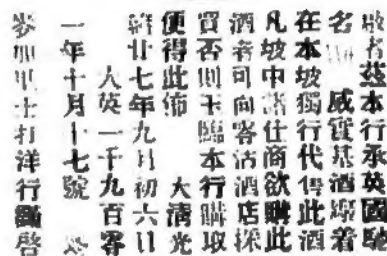 啟者茲本行承英國馳
名 威實基酒廠着
在本坡獨行代售此酒
凡坡中諸仕商欲購此
酒者可向客沽酒店採
買否則玉臨本行購取
便得此佈 大清光
緒廿七年九月初六日
大英一千九百零
一年十月十七號
麥加男士打洋行謹啓